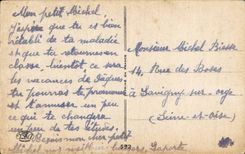 Mon petit Michel.
J'espère que tu es bien
rétabli de ta maladie
et que tu retourneras en
classe bientôt ce sera
les vacances de Pâques,
tu pourras te promener
et t'amuser un peu
ce qui te changera
un peu de tes
Reçois mon cher petit
Michel mes meilleurs baisers
Monsieur Michel
14, Rue des Roses
à Savigny sur orge
(Seine-et-Oise)